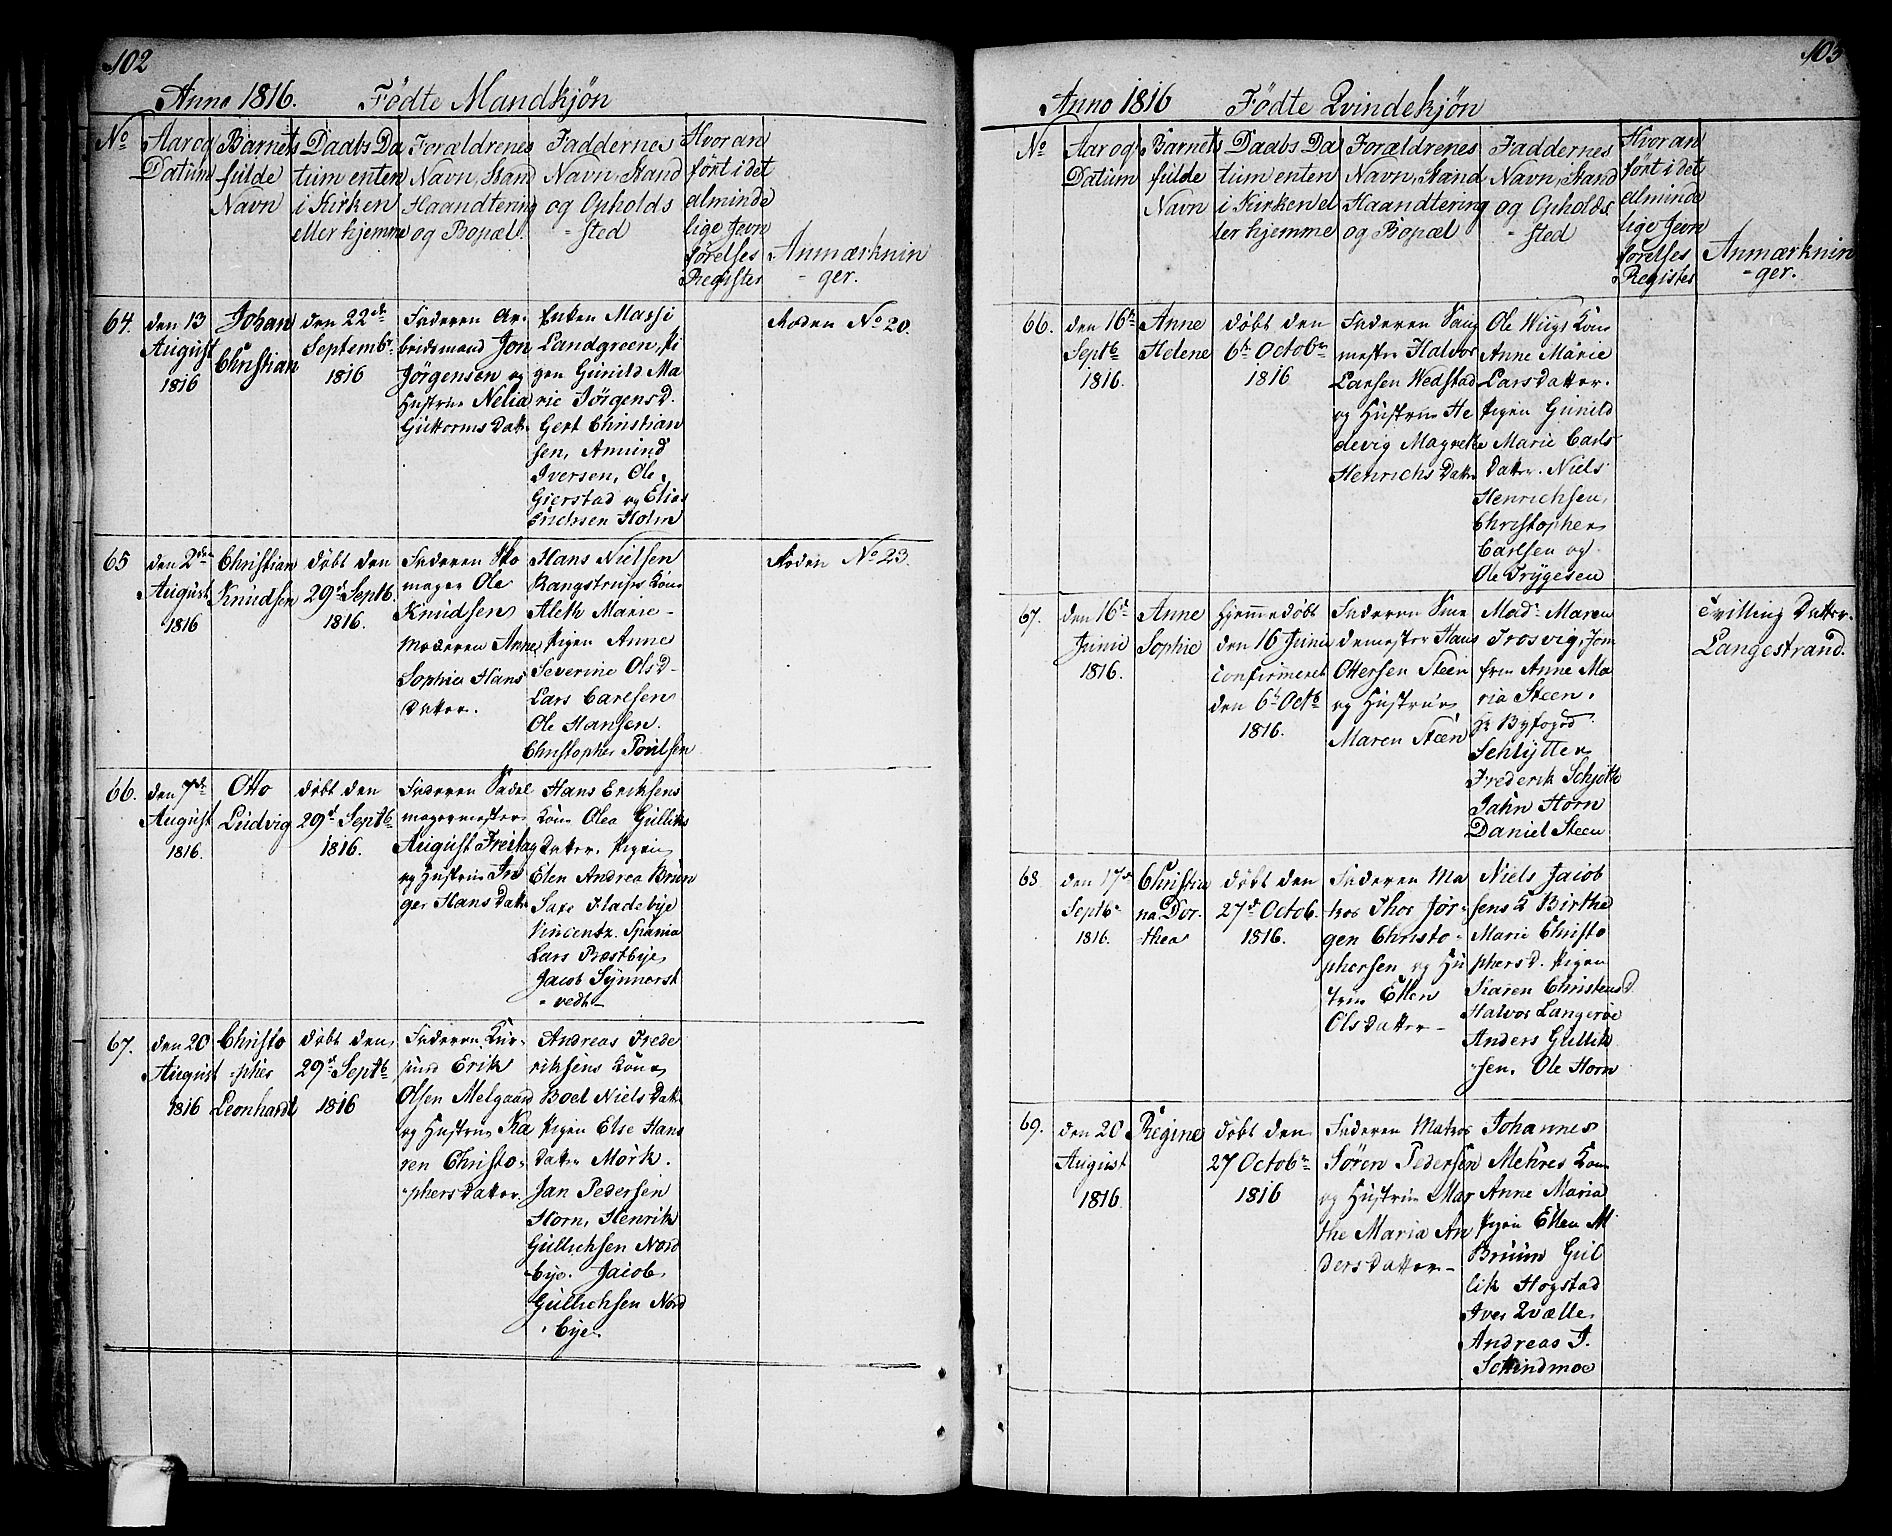 102
Anno 1816. Fødte Mandkjøn
No
Aar og
Datum
Barnets
fulde
Navn
Daabs Da
tum enten
i Kirken
eller hjemme
Forældrenes
Navn, Stand
Haandtering
og Bopæl.
Faddernes
Navn, Stand
og Opholds
- sted
Hvor an
ført i det
alminde
lige Jevn
førelses
Register
Anmærknin
- ger.
64.
den 13
August
1816
Johan
Christian
den 22de
Septembr
1816
Faderen Ar-
beidsmand Jon
Jörgensen og
Hustrue Nelia
Guttorms Datr
Enken Massi
Landgreen, Pi
gen Gunild Ma
rie Jörgensd.
Gert Christian
sen, Amund
Iversen, Ole
Gierstad og Elias
Erichsen Holm
Roden No 20.
65
den 2den
August
1816
Christian
Knudsen
døbt den
29d Septb.
1816.
Faderen Sko
mager Ole
Knudsen,
Moderen Anne
Sophia Hans
Datter.
Hans Nielsen
Rangstrups Kone
Aleth Marie -
Pigen Anne
Severine Olsd-
Lars Carlsen
Ole Hansen.
Christopher Poulsen
Roden No 23.
66.
den 7de
August
1816.
Otto
Ludvig
døbt den
29d Septb
1816.
Faderen Sadel
magermester
August Freitag
og Hustrue In
ger Hans Datr
Hans Eriksens
Kone Olea Gulliks
Datter. Pigen
Elen Andrea Bruun
Saxe Fladebye
Vincentz. Spania
Lars Præstbye,
Jacob Synnerst
- vedt -
67.
den 20
August
1816
Christo
-pher
Leonhardt
døbt den,
29d Septb
1816
Faderen
Erik
Olsen Melgaard
og Hustrue Ka
ren Christo-
-phers Datter.
Andreas Frede
riksens Kone
Boel Niels Datr
Pigen Else Hans
datter Mörk.
Jan Pedersen
Horn, Henrik
Gullichsen Nord
bye. Jacob
Gullichsen Nord
- bye.
103
Anno 1816 Fødte Qvindekjøn
No
Aar og
Datum
Barnets
fulde
Navn
Daabs Da
tum enten
i Kirken el
ler hjemme
Forældrenes
Navn, Stand
Haandtering
og Bopæl
Faddernes
Navn, Stand
og Opholds
- sted
Hvor an
ført i det
alminde
lige Jevn
førelses
Register
Anmærknin
-ger.
66.
den 16d
Septb
1816.
Anne
Helene
døbt den
6d Octobr
1816
Faderen Saug
mester Halvor
Larsen Wedstad
og Hustrue He
devig Magrethe
Henrichs Datter
Ole Wiigs Kone
Anne Marie
Larsdatter.
Pigen Gunild
Marie Carls
Datter. Niels
Henrichsen,
Christopher
Carlsen og
Ole Trygesen
67.
den 16d
Junii
1816.
Anne
Sophie
Hjemmedøbt
den 16 Junii
Confirmeret
den 6d Octb
1816.
Faderen Sme
demester Hans
Ottersen Steen
og Hustrue
Maren Steen
Mad. Maren
Trosvig, Jom
frue Anne Ma
ria Steen.
Hr Byfoged
Schlytter,
Frederik Schjøth
Jahn Horn
Daniel Steen
Tvilling Datter.
Langestrand.
68
den 17d
Septbr
1816.
Christia
na Dor-
thea
døbt den
27d Octob.
1816.
Faderen Ma
tros Thor Jör-
gen Christo-
phersen, og Hu
strue Ellen
Olsdatter -
Niels Jacob
sens K Birthe
Marie Christo
phersd. Pigen
Karen Christensd
Halvor Langerøe
Anders Gullik
-sen. Ole Horn
69.
den 20
August
1816.
Regine
døbt den
27 Octobr
1816
Faderen Matros
Søren Pedersen
og Hustrue Mar
the Maria An
dersdatter -
Johannes
Mehres Kone
Anne Maria
Pigen Ellen M
Bruun Gul
lik Hogstad
Iver Qvælle,
Andreas J.
Solindmoe